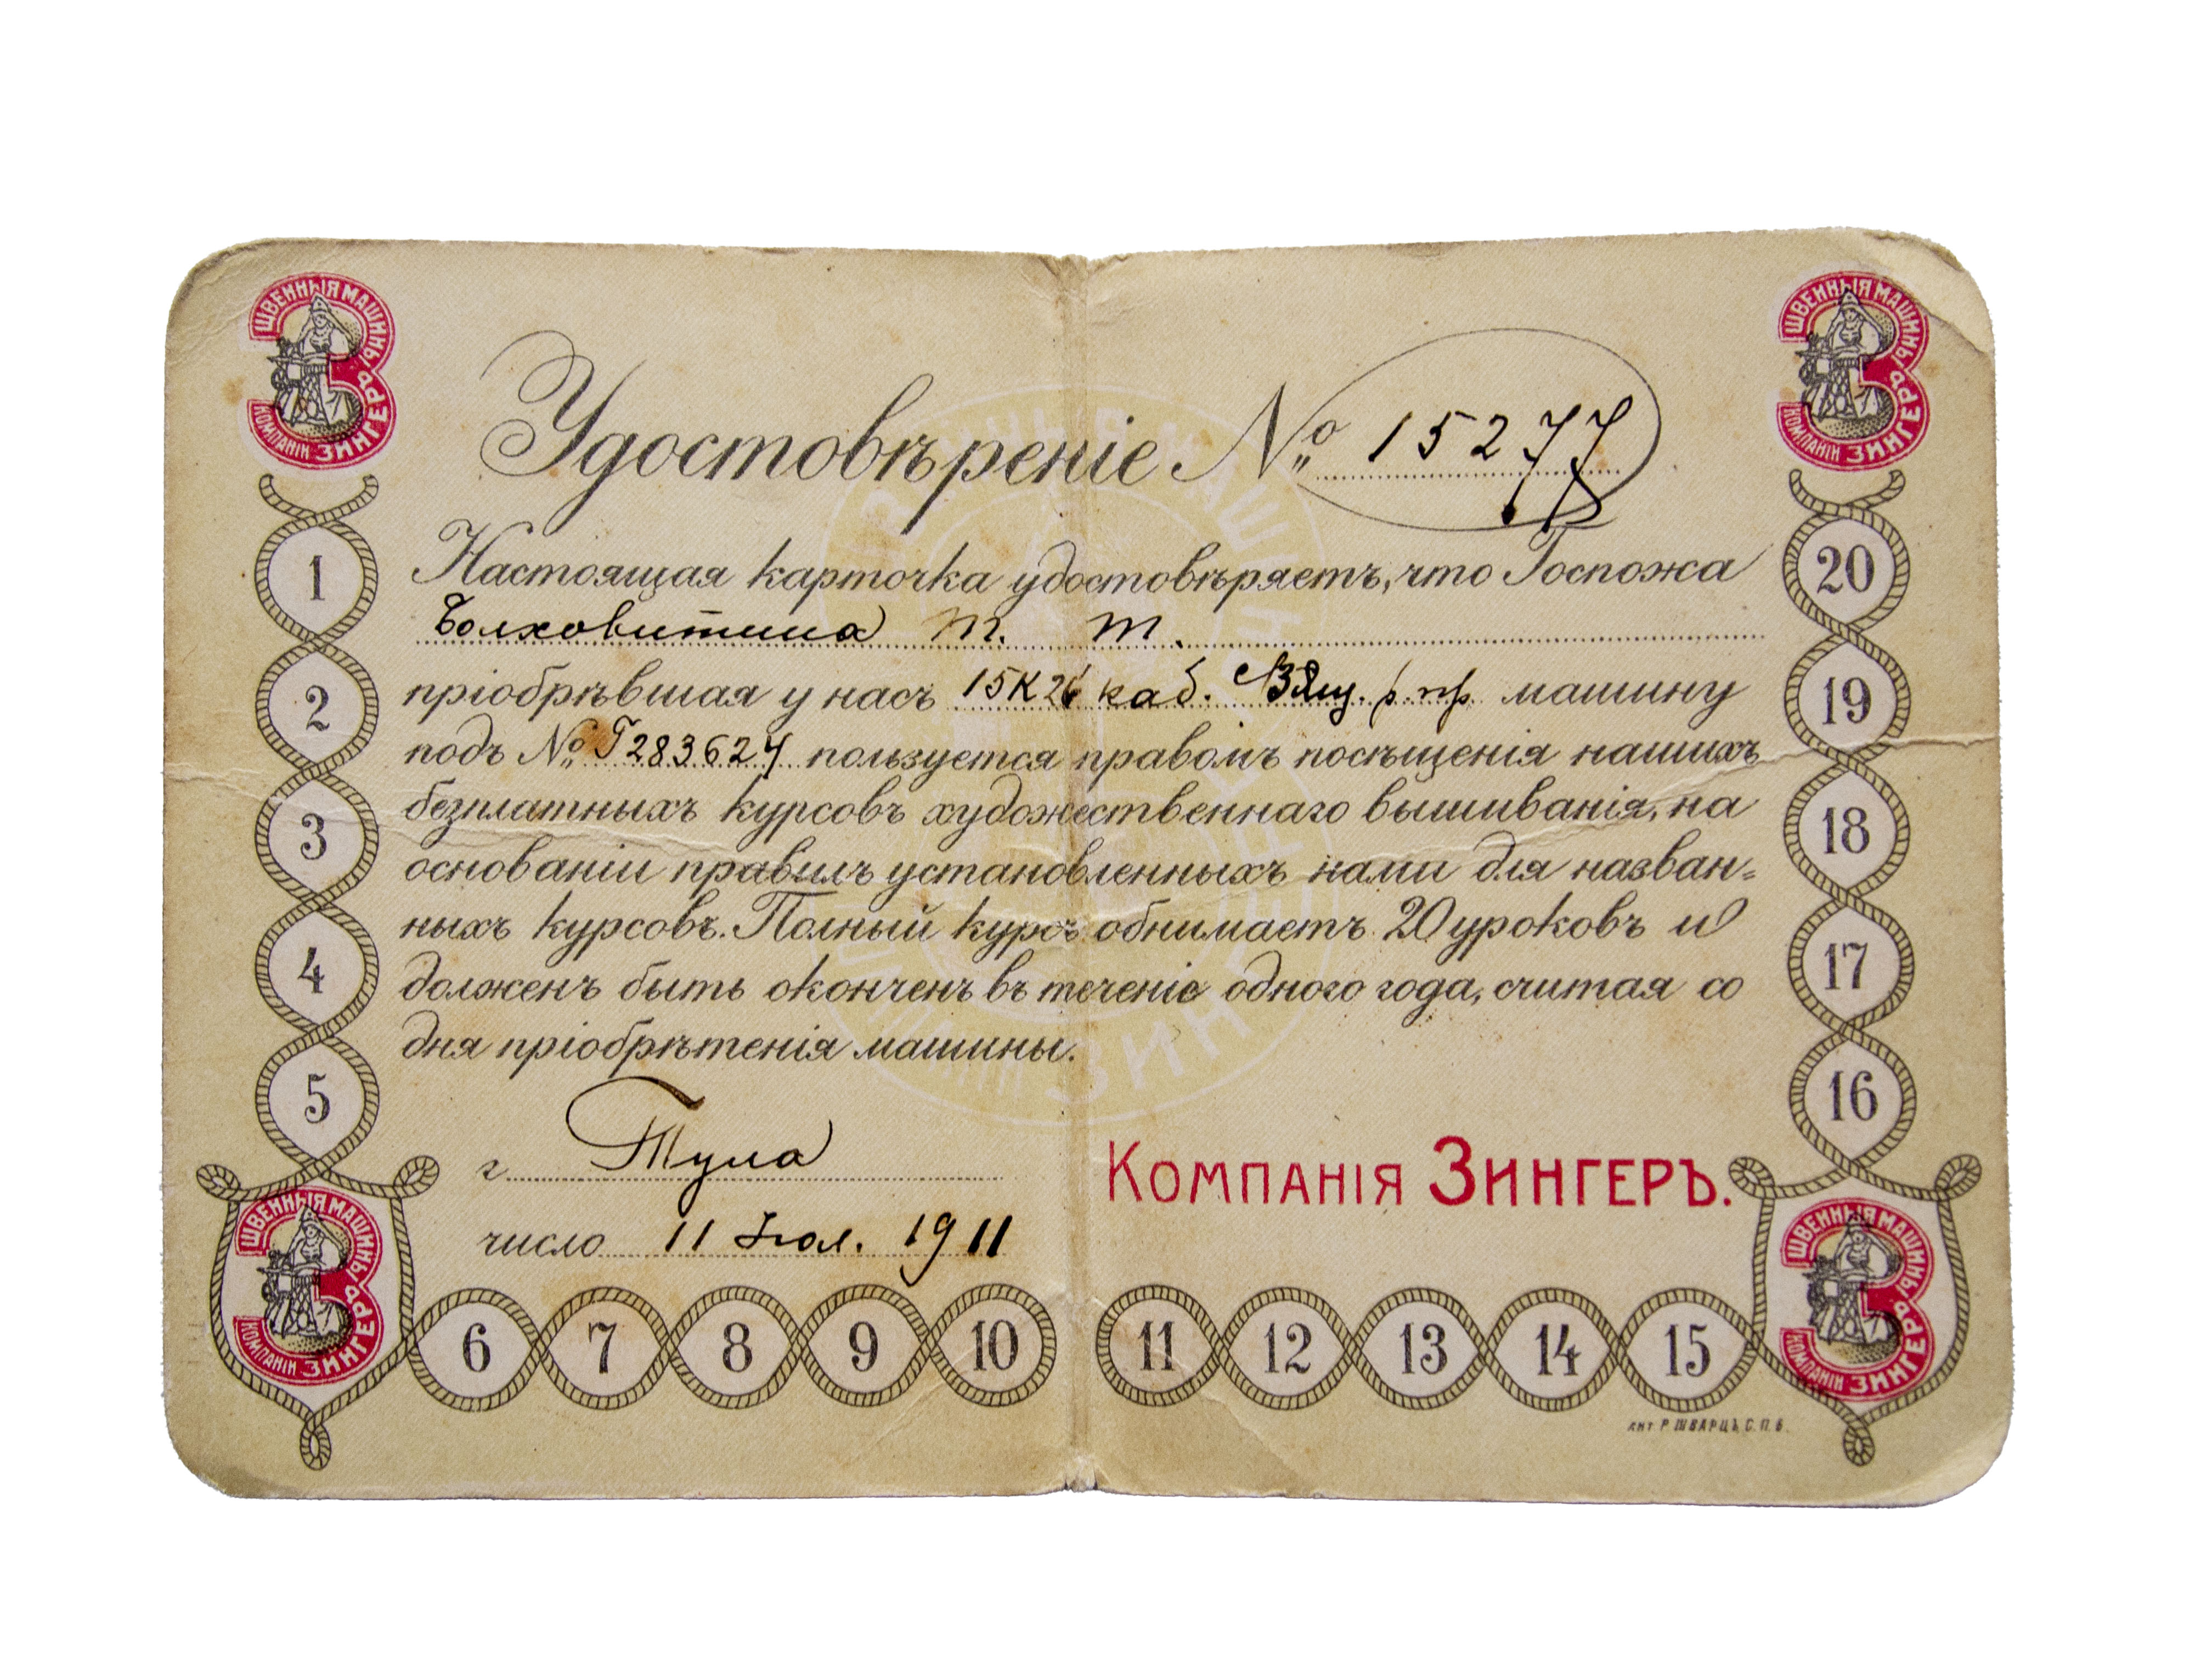 ШВЕЙНЫЯ МАШИНЫ
КОМПАНІИ ЗИНГЕРЪ
ШВЕЙНЫЯ МАШИНЫ
КОМПАНІИ ЗИНГЕРЪ
Удостовѣреніе № 15277
Настоящая карточка удостовѣряетъ, что Госпожа
Болховитина М. М.
пріобрѣвшая у насъ 15К26 каб. машину
подъ № Г283627 пользуется правомъ посѣщенія нашихъ
безплатныхъ курсовъ художественнаго вышиванія, на
основаніи правилъ установленныхъ нами для назван-
ныхъ курсовъ. Полный курсъ обнимаетъ 20 уроковъ и
долженъ быть оконченъ въ теченіе одного года, считая со
дня пріобрѣтенія машины.
г. Тула
КОМПАНІЯ ЗИНГЕРЪ.
число 11 Іюл. 1911
1
2
3
4
5
6 7 8 9 10 11 12 13 14 15
16
17
18
19
20
ШВЕЙНЫЯ МАШИНЫ
КОМПАНІИ ЗИНГЕРЪ
ШВЕЙНЫЯ МАШИНЫ
КОМПАНІИ ЗИНГЕРЪ
Р. ШВАРЦЪ, С.П.Б.